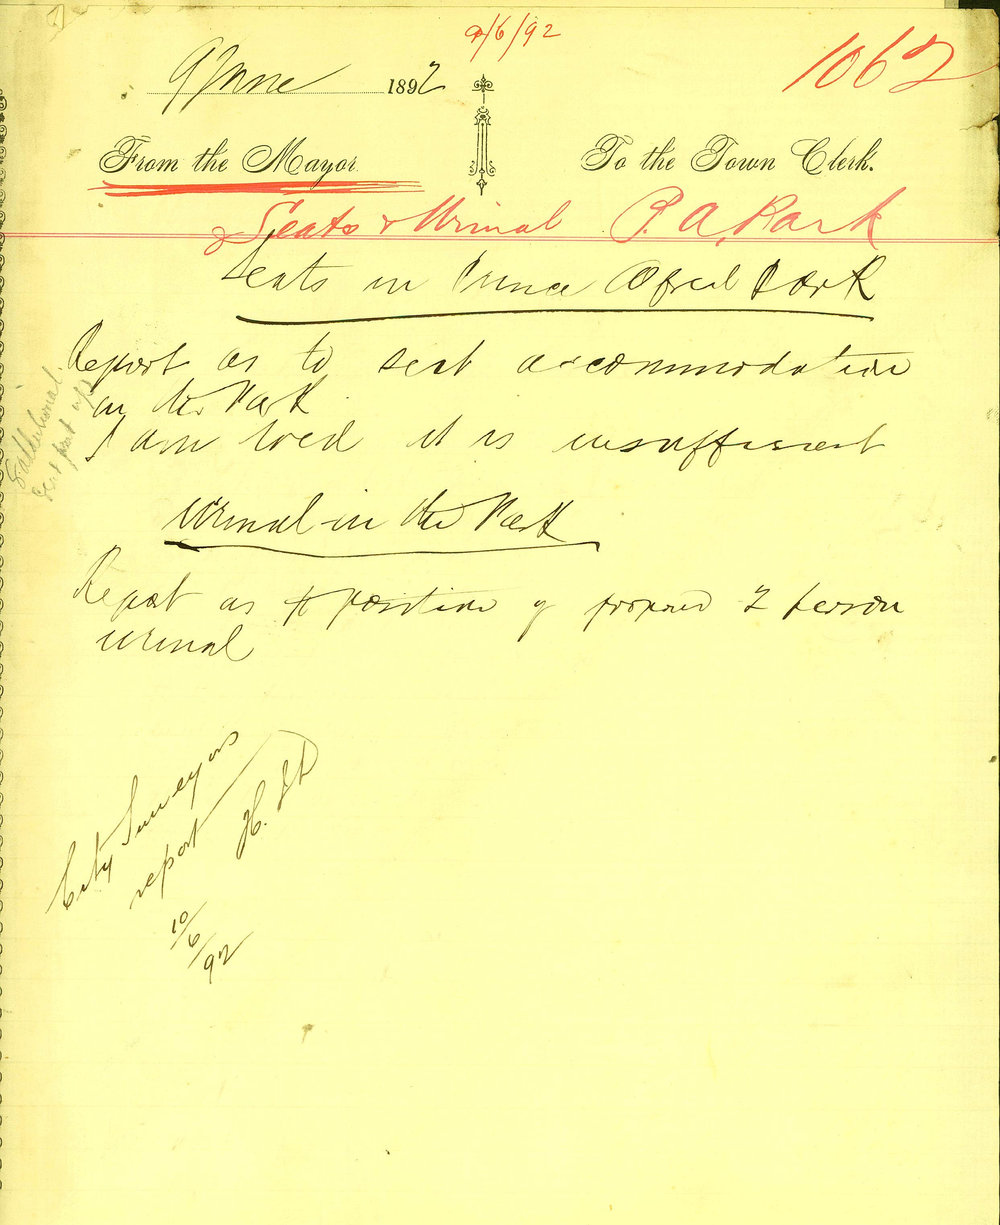 9/6/92
1062
9 June 1892
From the Mayor
To the Town Clerk.
Seats & Urinal P. A. Park
Seats in Prince Alfred Park
Report as to seat accommodation
in the Park
I am told it is insufficient
additional
seat put up
Urinal in the Park
Report as to position of proposed 2 person
urinal
City Surveyors
report
10/6/92